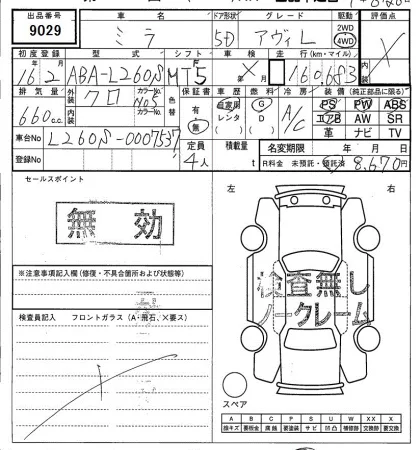 出品番号 車名 ドア形状 グレード 駆動 評価点
9029 ミラ 5D アヴィL 2WD 4WD X
初度登録 型式 シフト 車検 走行(km・マイル)
16年2月 ABA-L260S MT5 X年月 160,683
排気量 外装 カラーNo. 色替 保証書 車歴 燃料 冷房 装備(純正部品に限る)
660cc クロ 有 無 自家用 レンタ G D A/C PS PW ABS
内装 カラーNo. エアB AW SR
革 ナビ TV
車台No L260S-0007537 定員 4人 積載量 t 名変期限 年 月 日
登録No R料金 未預託・預託済 8,670円
セールスポイント
無効
左 右
※注意事項記入欄(修復・不具合箇所および状態等)
検査無し
ノークレーム
検査員記入 フロントガラス(A・飛石、X要ス)
スペア
A B C P S U W XX X
線キズ 要板金 腐蝕 要塗装 サビ 凹凸 補修跡 交換跡 要交換